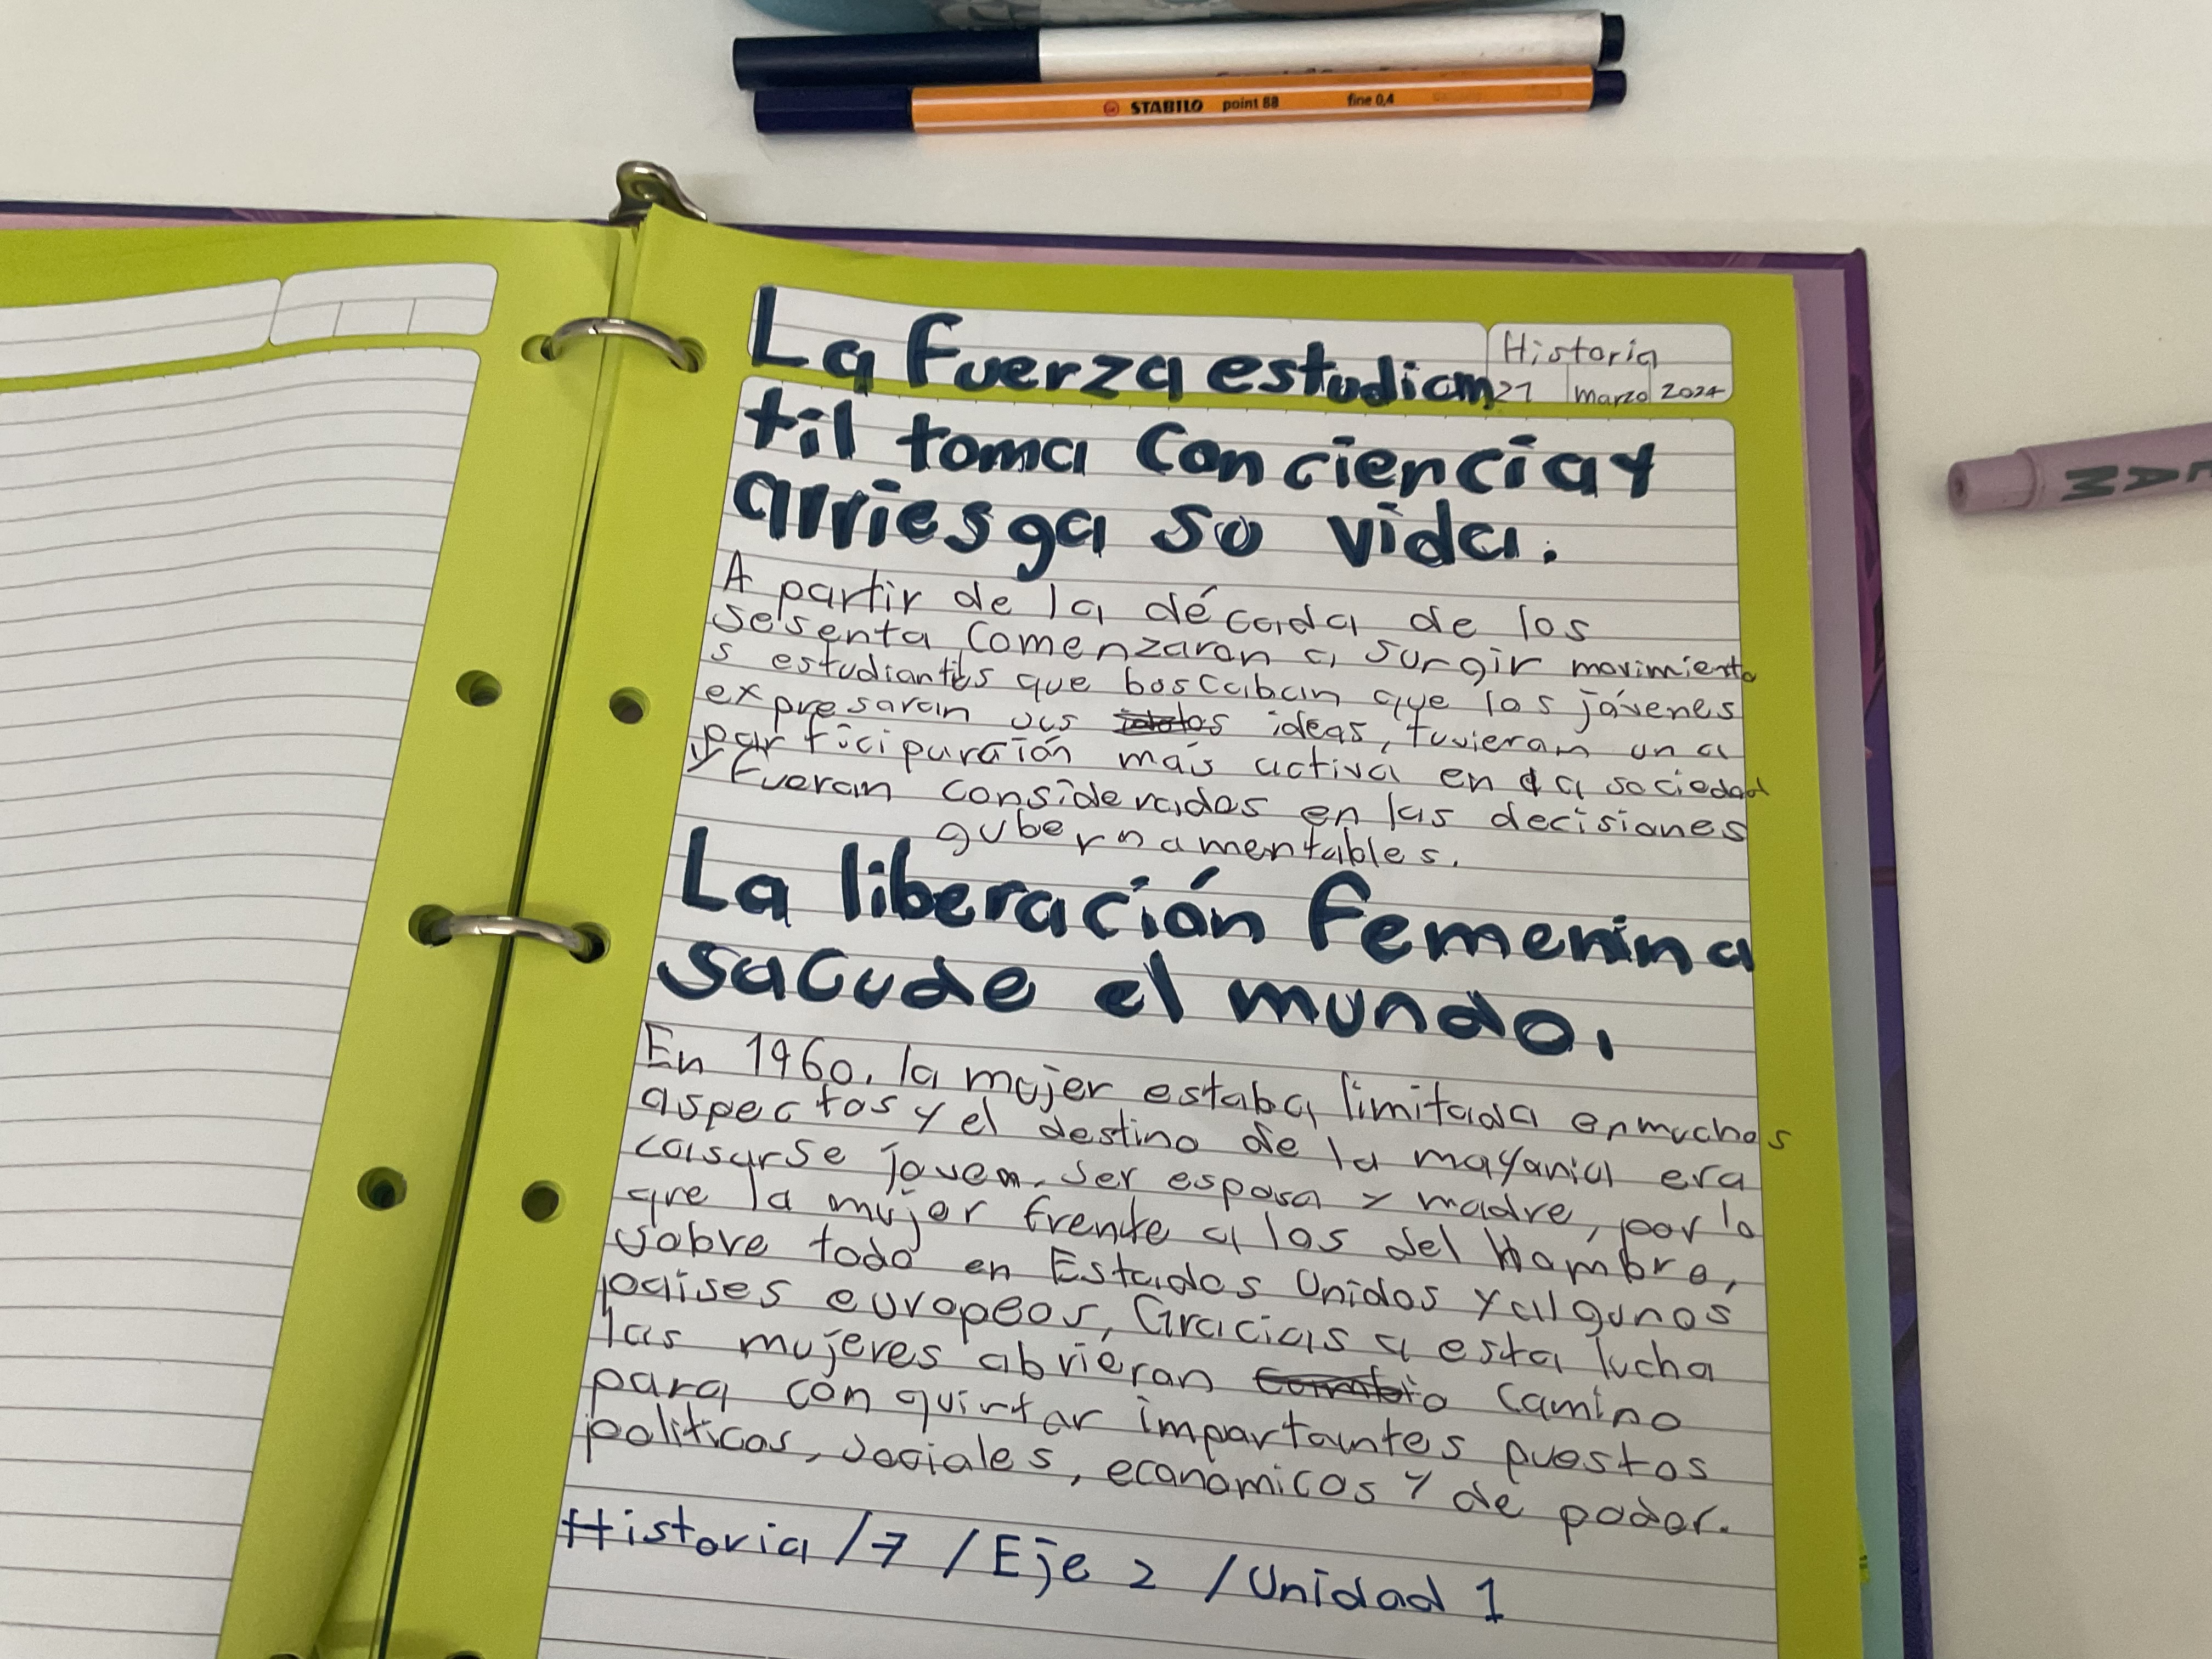 STABILO point 88 fine 0,4
Historia
27 marzo 2024
La fuerza estudian
til toma conciencia y
arriesga su vida.
A partir de la década de los
sesenta comenzaron a surgir movimiento
s estudiantiles que buscaban que los jóvenes
expresaran sus ideas, tuvieran una
participación más activa en la sociedad
y fueran considerados en las decisiones
gubernamentables.
La liberación femenina
sacude el mundo.
En 1960, la mujer estaba limitada en muchos
aspectos y el destino de la mayoria era
casarse joven, ser esposa y madre, por lo
que la mujer frente a los del Hombre,
sobre todo en Estados Unidos y algunos
paises europeos, Gracias a esta lucha
las mujeres abrieran camino
para conquirtar importantes puestos
politicos, sociales, economicos y de poder.
Historia / 7 / Eje 2 / Unidad 1